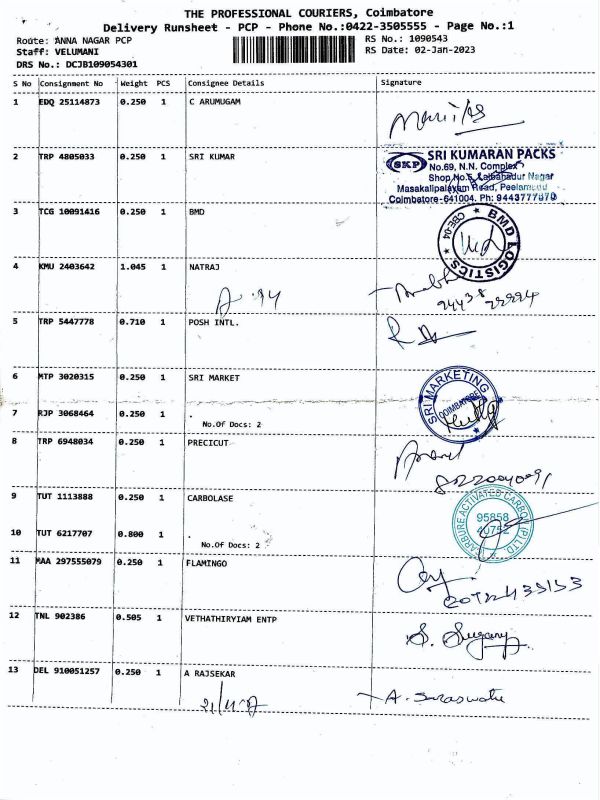 THE PROFESSIONAL COURIERS, Coimbatore
Delivery Runsheet - PCP - Phone No.:0422-3505555 - Page No.:1
Route: ANNA NAGAR PCP
RS No.: 1090543
Staff: VELUMANI
RS Date: 02-Jan-2023
DRS No.: DCJB109054301
S No Consignment No Weight PCS Consignee Details Signature
1 EDQ 25114873 0.250 1 C ARUMUGAM
2 TRP 4805033 0.250 1 SRI KUMAR
SKP SRI KUMARAN PACKS
No.69, N.N. Complex
Shop No.5, Lalbahadur Nagar
Masakalipalayam Road, Peelamedu
Coimbatore-641004. Ph: 9443777070
3 TCG 10091416 0.250 1 BMD
BMD LOGISTICS CBE-04
4 KMU 2403642 1.045 1 NATRAJ
5 TRP 5447778 0.710 1 POSH INTL.
6 MTP 3020315 0.250 1 SRI MARKET
SRI MARKETING COIMBATORE
7 RJP 3068464 0.250 1 .
No.Of Docs: 2
8 TRP 6948034 0.250 1 PRECICUT
9 TUT 1113888 0.250 1 CARBOLASE
CARBURE ACTIVATED CARBON (P) LTD.
95858
40752
10 TUT 6217707 0.800 1 .
No.Of Docs: 2
11 MAA 297555079 0.250 1 FLAMINGO
12 TNL 902386 0.505 1 VETHATHIRYIAM ENTP
S. Sugany
13 DEL 910051257 0.250 1 A RAJSEKAR
A. Saraswathi